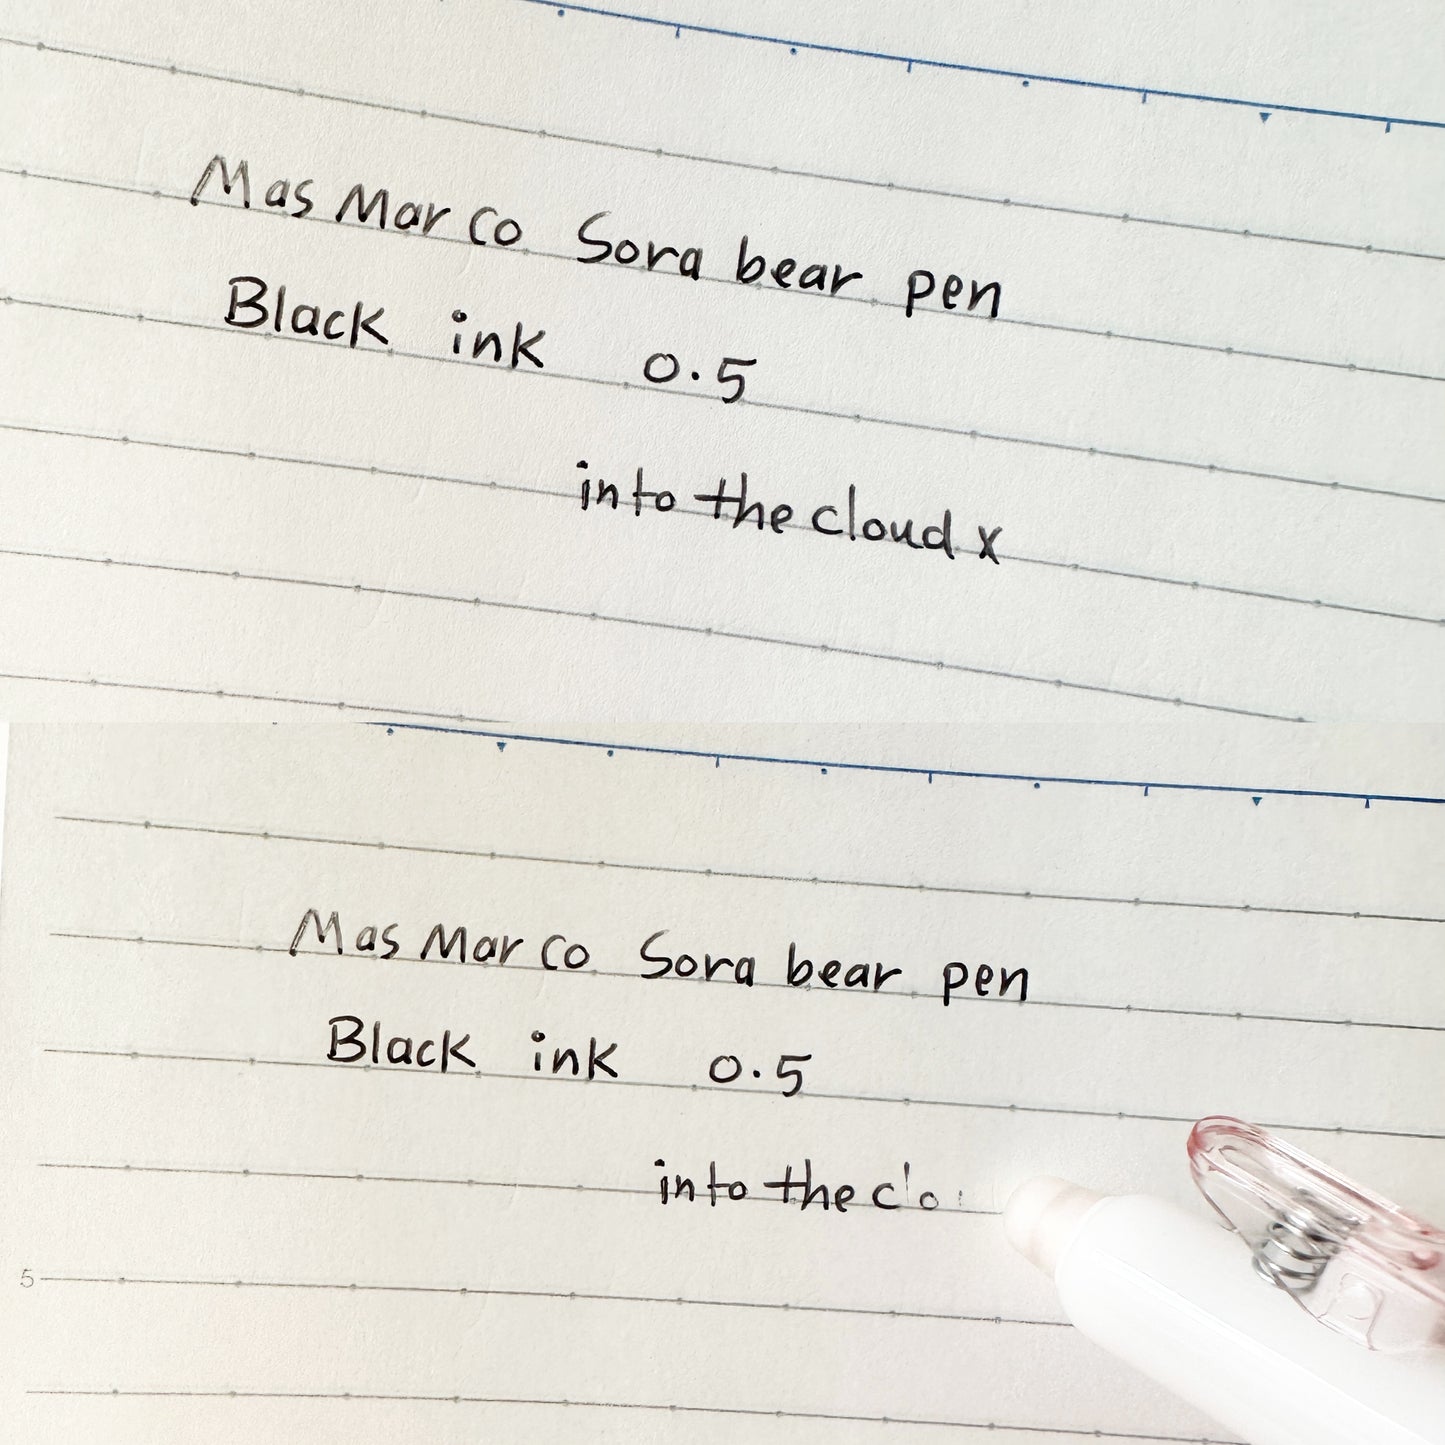 MasMarco Sora bear pen
Black ink 0.5
into the cloud x
MasMarco Sora bear pen
Black ink 0.5
into the clo
5